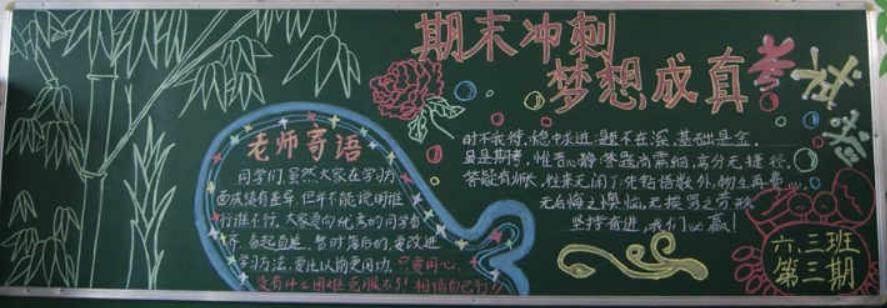 期末冲刺
梦想成真
老师寄语
同学们,虽然大家在学习方
面成绩有差异,但并不能说明谁
行谁不行,大家要向优秀的同学看
齐,奋起直追,暂时落后的,要改进
学习方法,要比以前更用功,只要用心,
没有什么困难克服不了!相信自己行!
时不我待,稳中求进,题不在深,基础是金,
虽是期考,惟吾心静,答题尚需细,高分无捷径,
答疑有师长,往来无闲
无后悔之懊恼,无挨骂之
坚持奋进,我们必赢!
六.三班
第三期